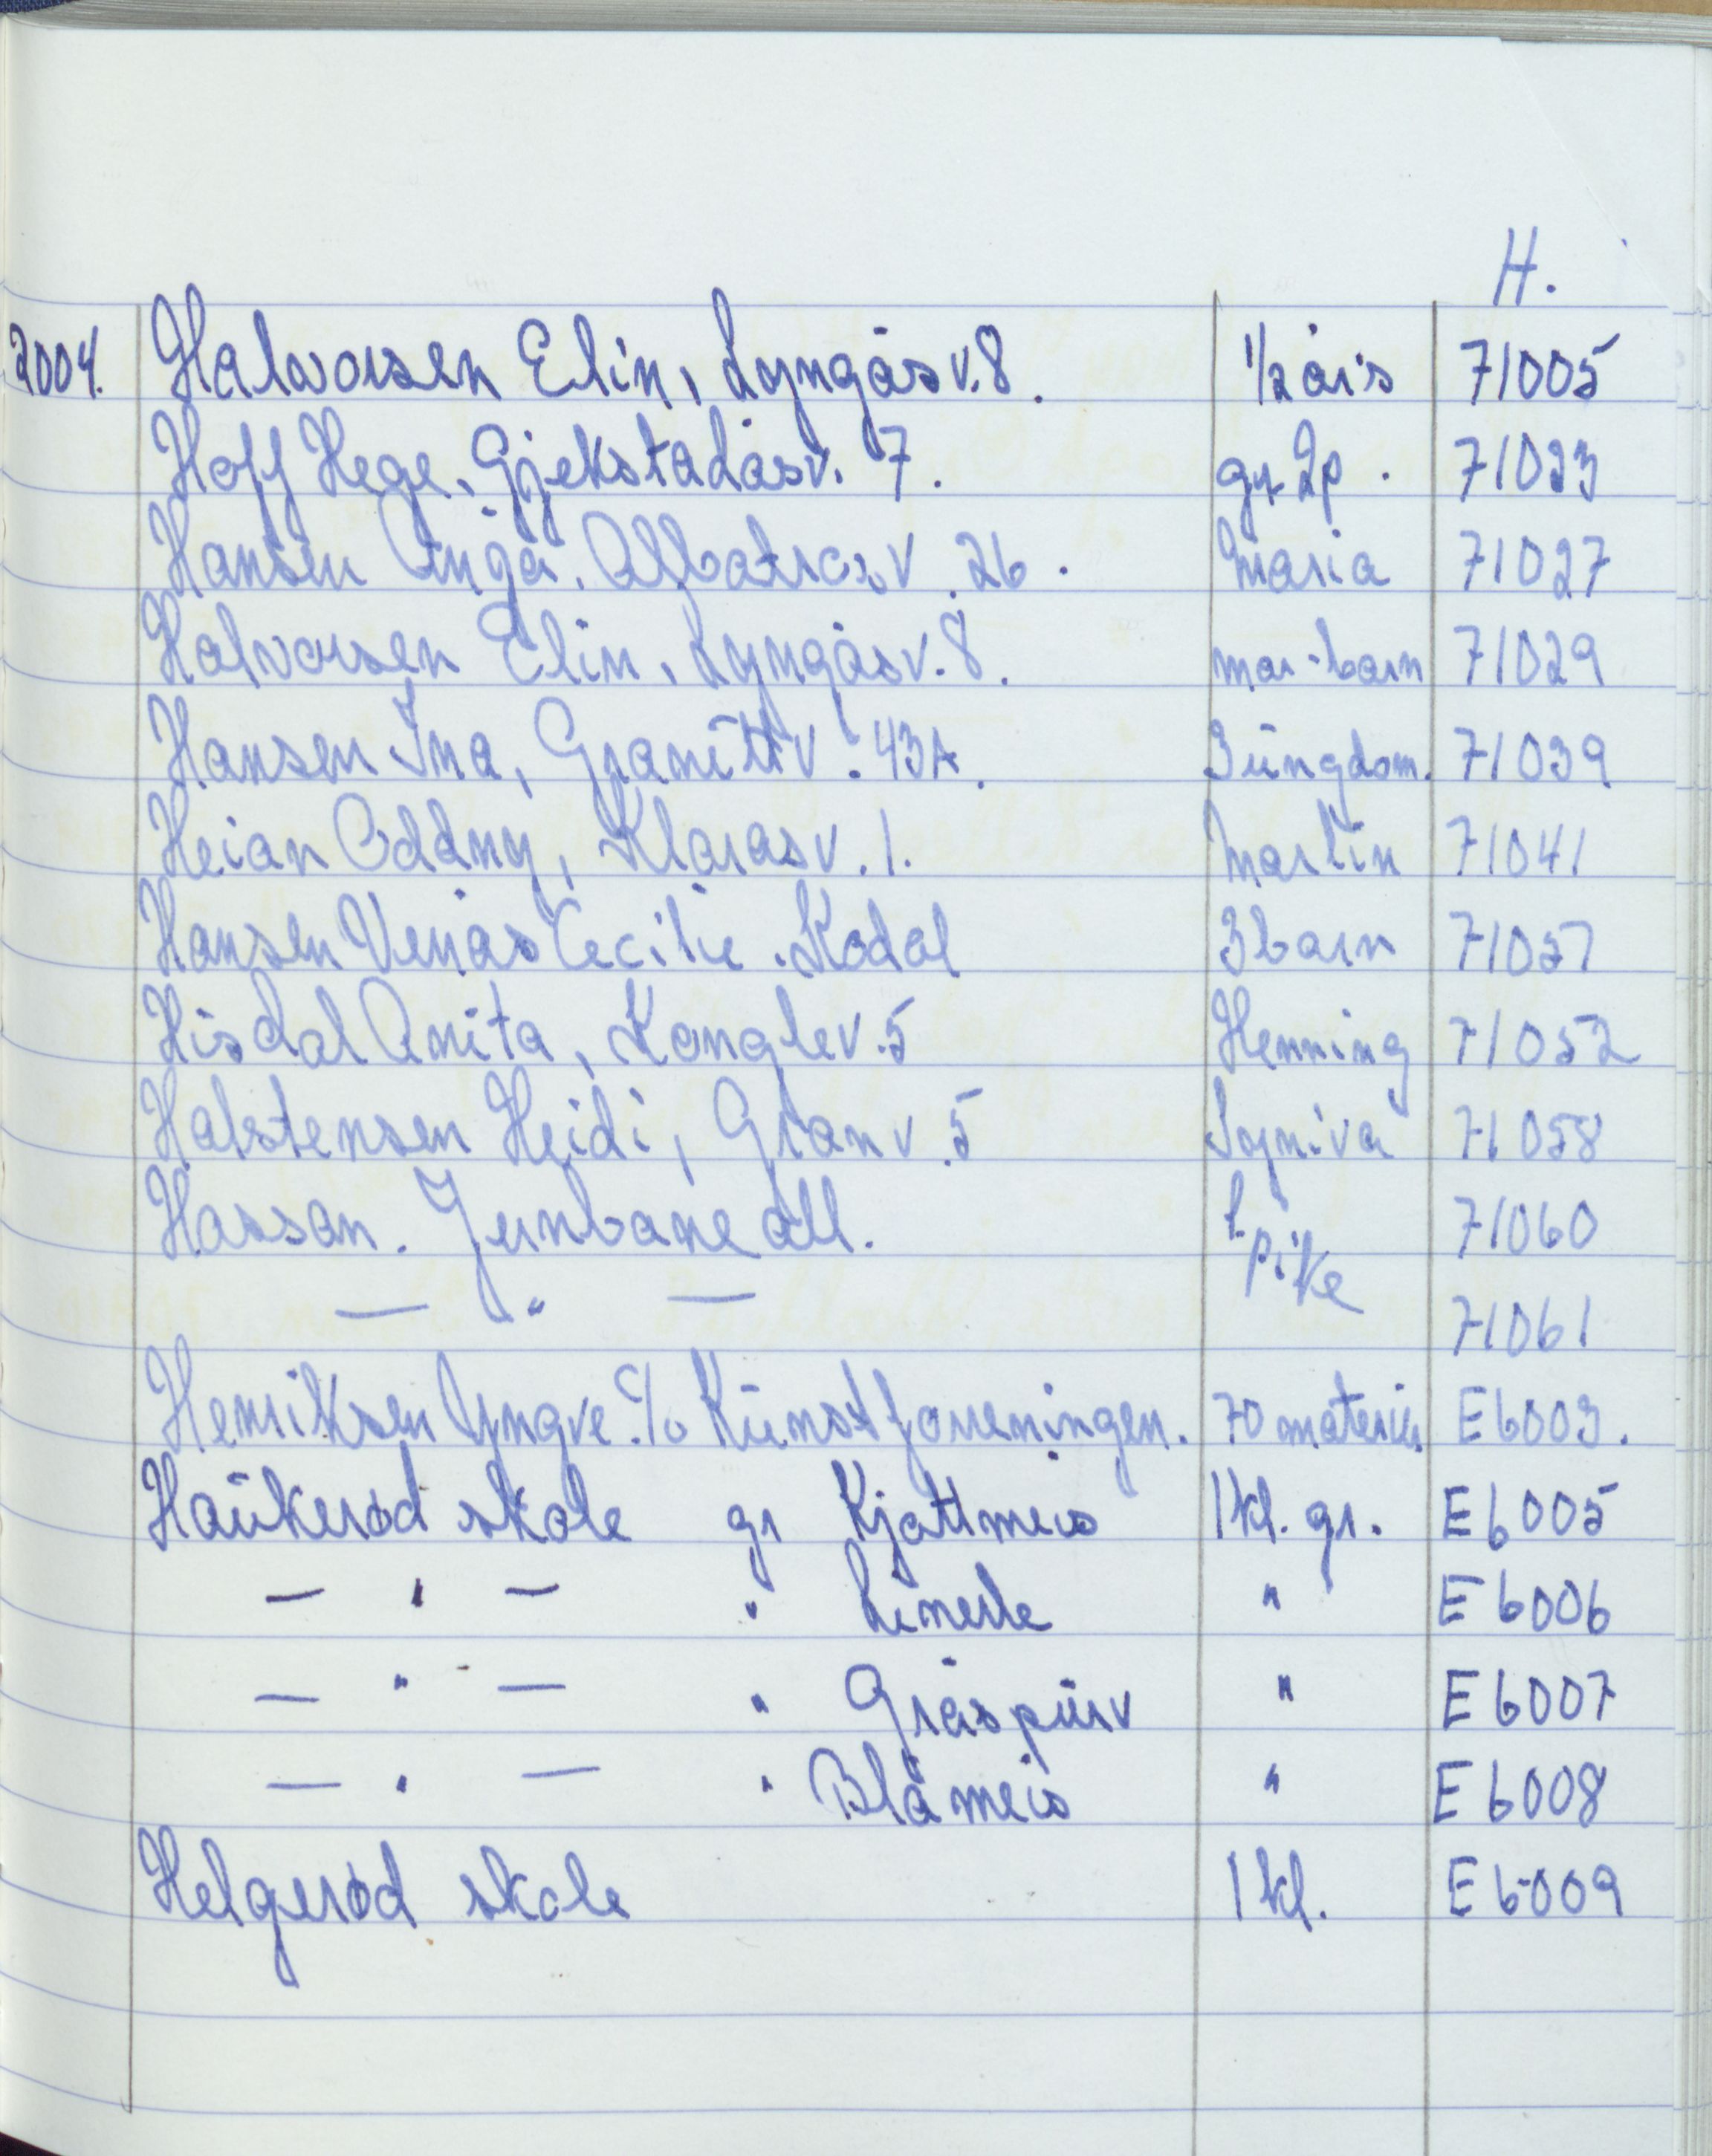 H.
2004. Halvorsen Elin, Lyngåsv. 8. 1/2 års 71005
Hoff Hege, Gjekstadåsv. 7. gr 2p. 71023
Hansen Unga, Albatrosv. 26. Maria 71027
Halvorsen Elin, Lyngåsv. 8. mor-barn 71029
Hansen Ina, Granittv. 43A. 3 ungdom. 71039
Heian Oddny, Klarasv. 1. Martin 71041
Hansen Venås Cecilie. Kodal 3 barn 71051
Hisdal Anita, Konglev. 5 Henning 71052
Halstensen Heidi, Granv. 5 Syniva 71058
Hassan. Jernbane all. 1. pike 71060
— " — 71061
Henriksen Yngve. c/o Kunstforreningen. 70 E6003.
Haukerød skole gr Kjøttmeis 1 kl. gr. E6005
— " — " Linerle " E6006
— " — " Gråspurv " E6007
— " — " Blåmeis " E6008
Helgerød skole 1 kl. E6009